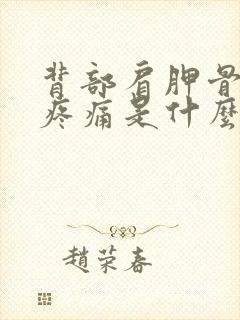 背部肩胛骨
疼痛是什麼
趙荣春